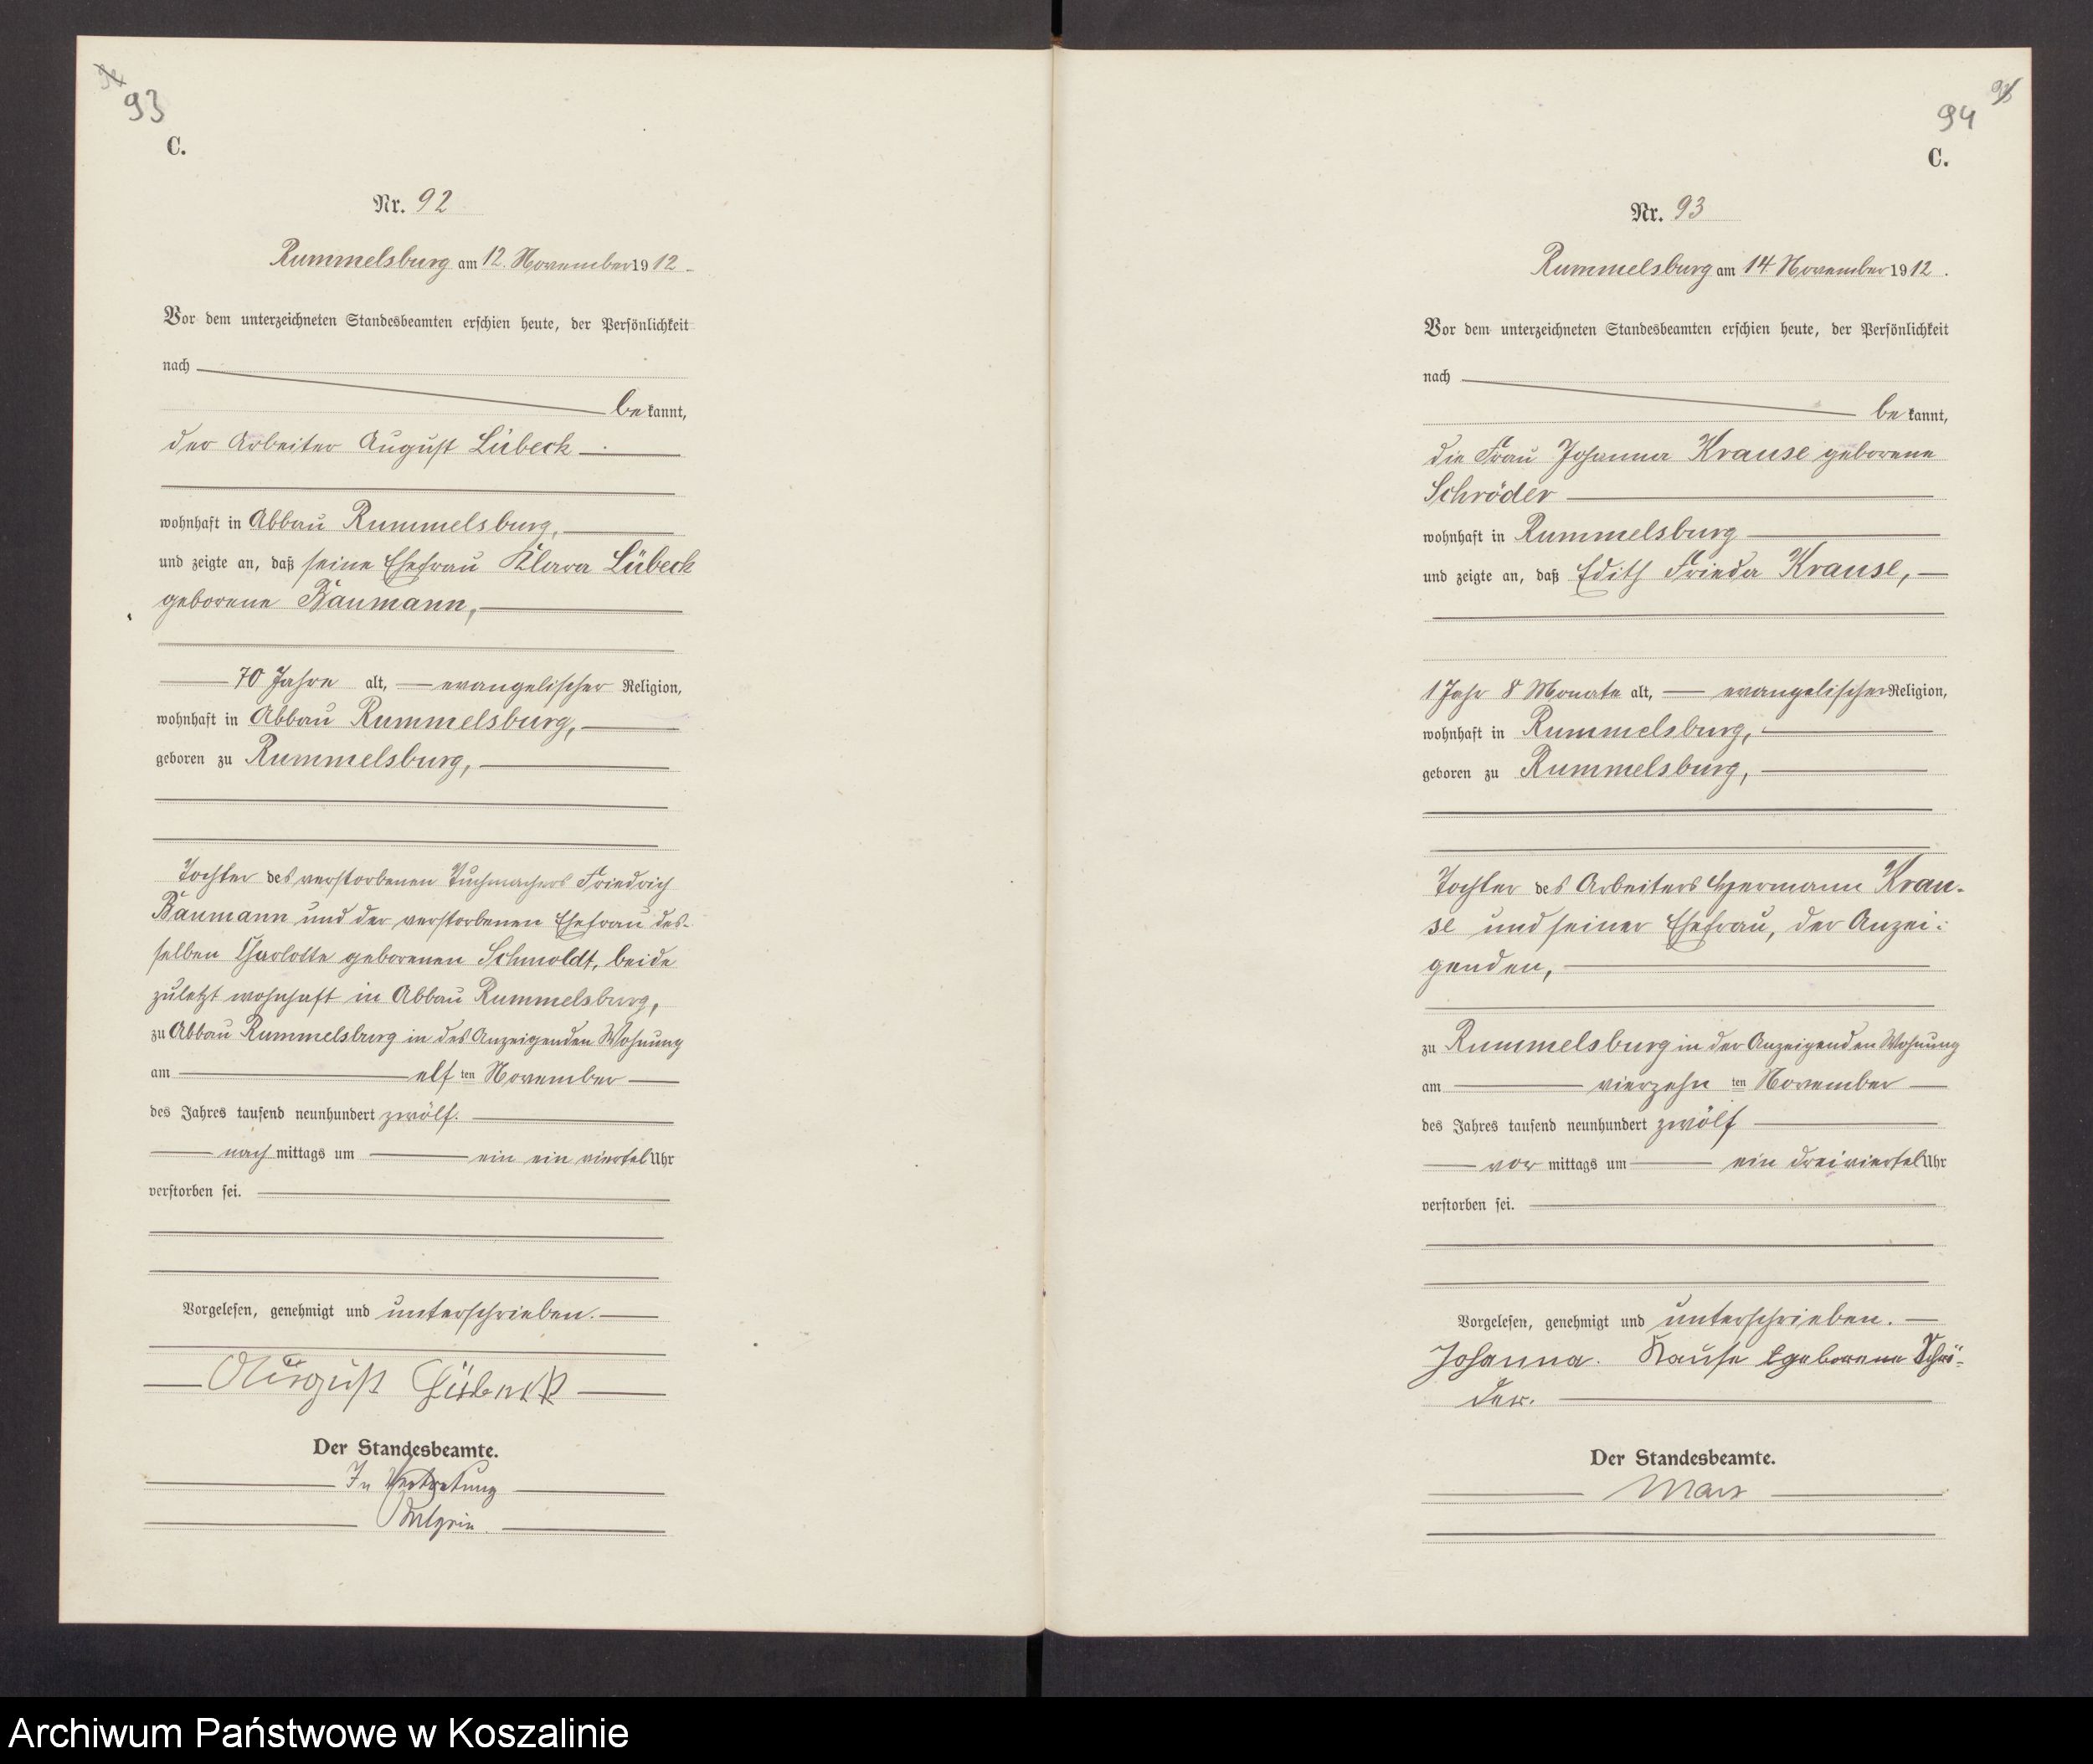 93
C.
Nr. 92
Rummelsburg am 12. November 1912.
Vor dem unterzeichneten Standesbeamten erschien heute, der Persönlichkeit
nach
bekannt,
der Arbeiter August Lübeck
wohnhaft in Abbau Rummelsburg,
und zeigte an, daß seine Ehefrau Klara Lübeck
geborene Baumann,
70 Jahre alt, evangelischer Religion,
wohnhaft in Abbau Rummelsburg,
geboren zu Rummelsburg,
Tochter des verstorbenen Tuchmachers Friedrich
Baumann und der verstorbenen Ehefrau des-
selben Charlotte geborenen Schmoldt, beide
zuletzt wohnhaft in Abbau Rummelsburg,
zu Abbau Rummelsburg in des Anzeigenden Wohnung
am elften November
des Jahres tausend neunhundert zwölf.
nachmittags um ein ein viertel Uhr
verstorben sei.
Vorgelesen, genehmigt und unterschrieben.
August Lübeck
Der Standesbeamte.
In Vertretung
94
C.
Nr. 93
Rummelsburg am 14 November 1912.
Vor dem unterzeichneten Standesbeamten erschien heute, der Persönlichkeit
nach
bekannt,
die Frau Johanna Krause geborene
Schröder
wohnhaft in Rummelsburg
und zeigte an, daß Edith Frieda Krause,
1 Jahr 8 Monate alt, evangelischer Religion,
wohnhaft in Rummelsburg,
geboren zu Rummelsburg,
Tochter des Arbeiters Hermann Krau-
se und seiner Ehefrau, der Anzei:
genden,
zu Rummelsburg in der Anzeigenden Wohnung
am vierzehnten November
des Jahres tausend neunhundert zwölf
vormittags um ein dreiviertel Uhr
verstorben sei.
Vorgelesen, genehmigt und unterschrieben.
Johanna. Krause geborene Schrö-
der.
Der Standesbeamte.
Archiwum Państwowe w Koszalinie